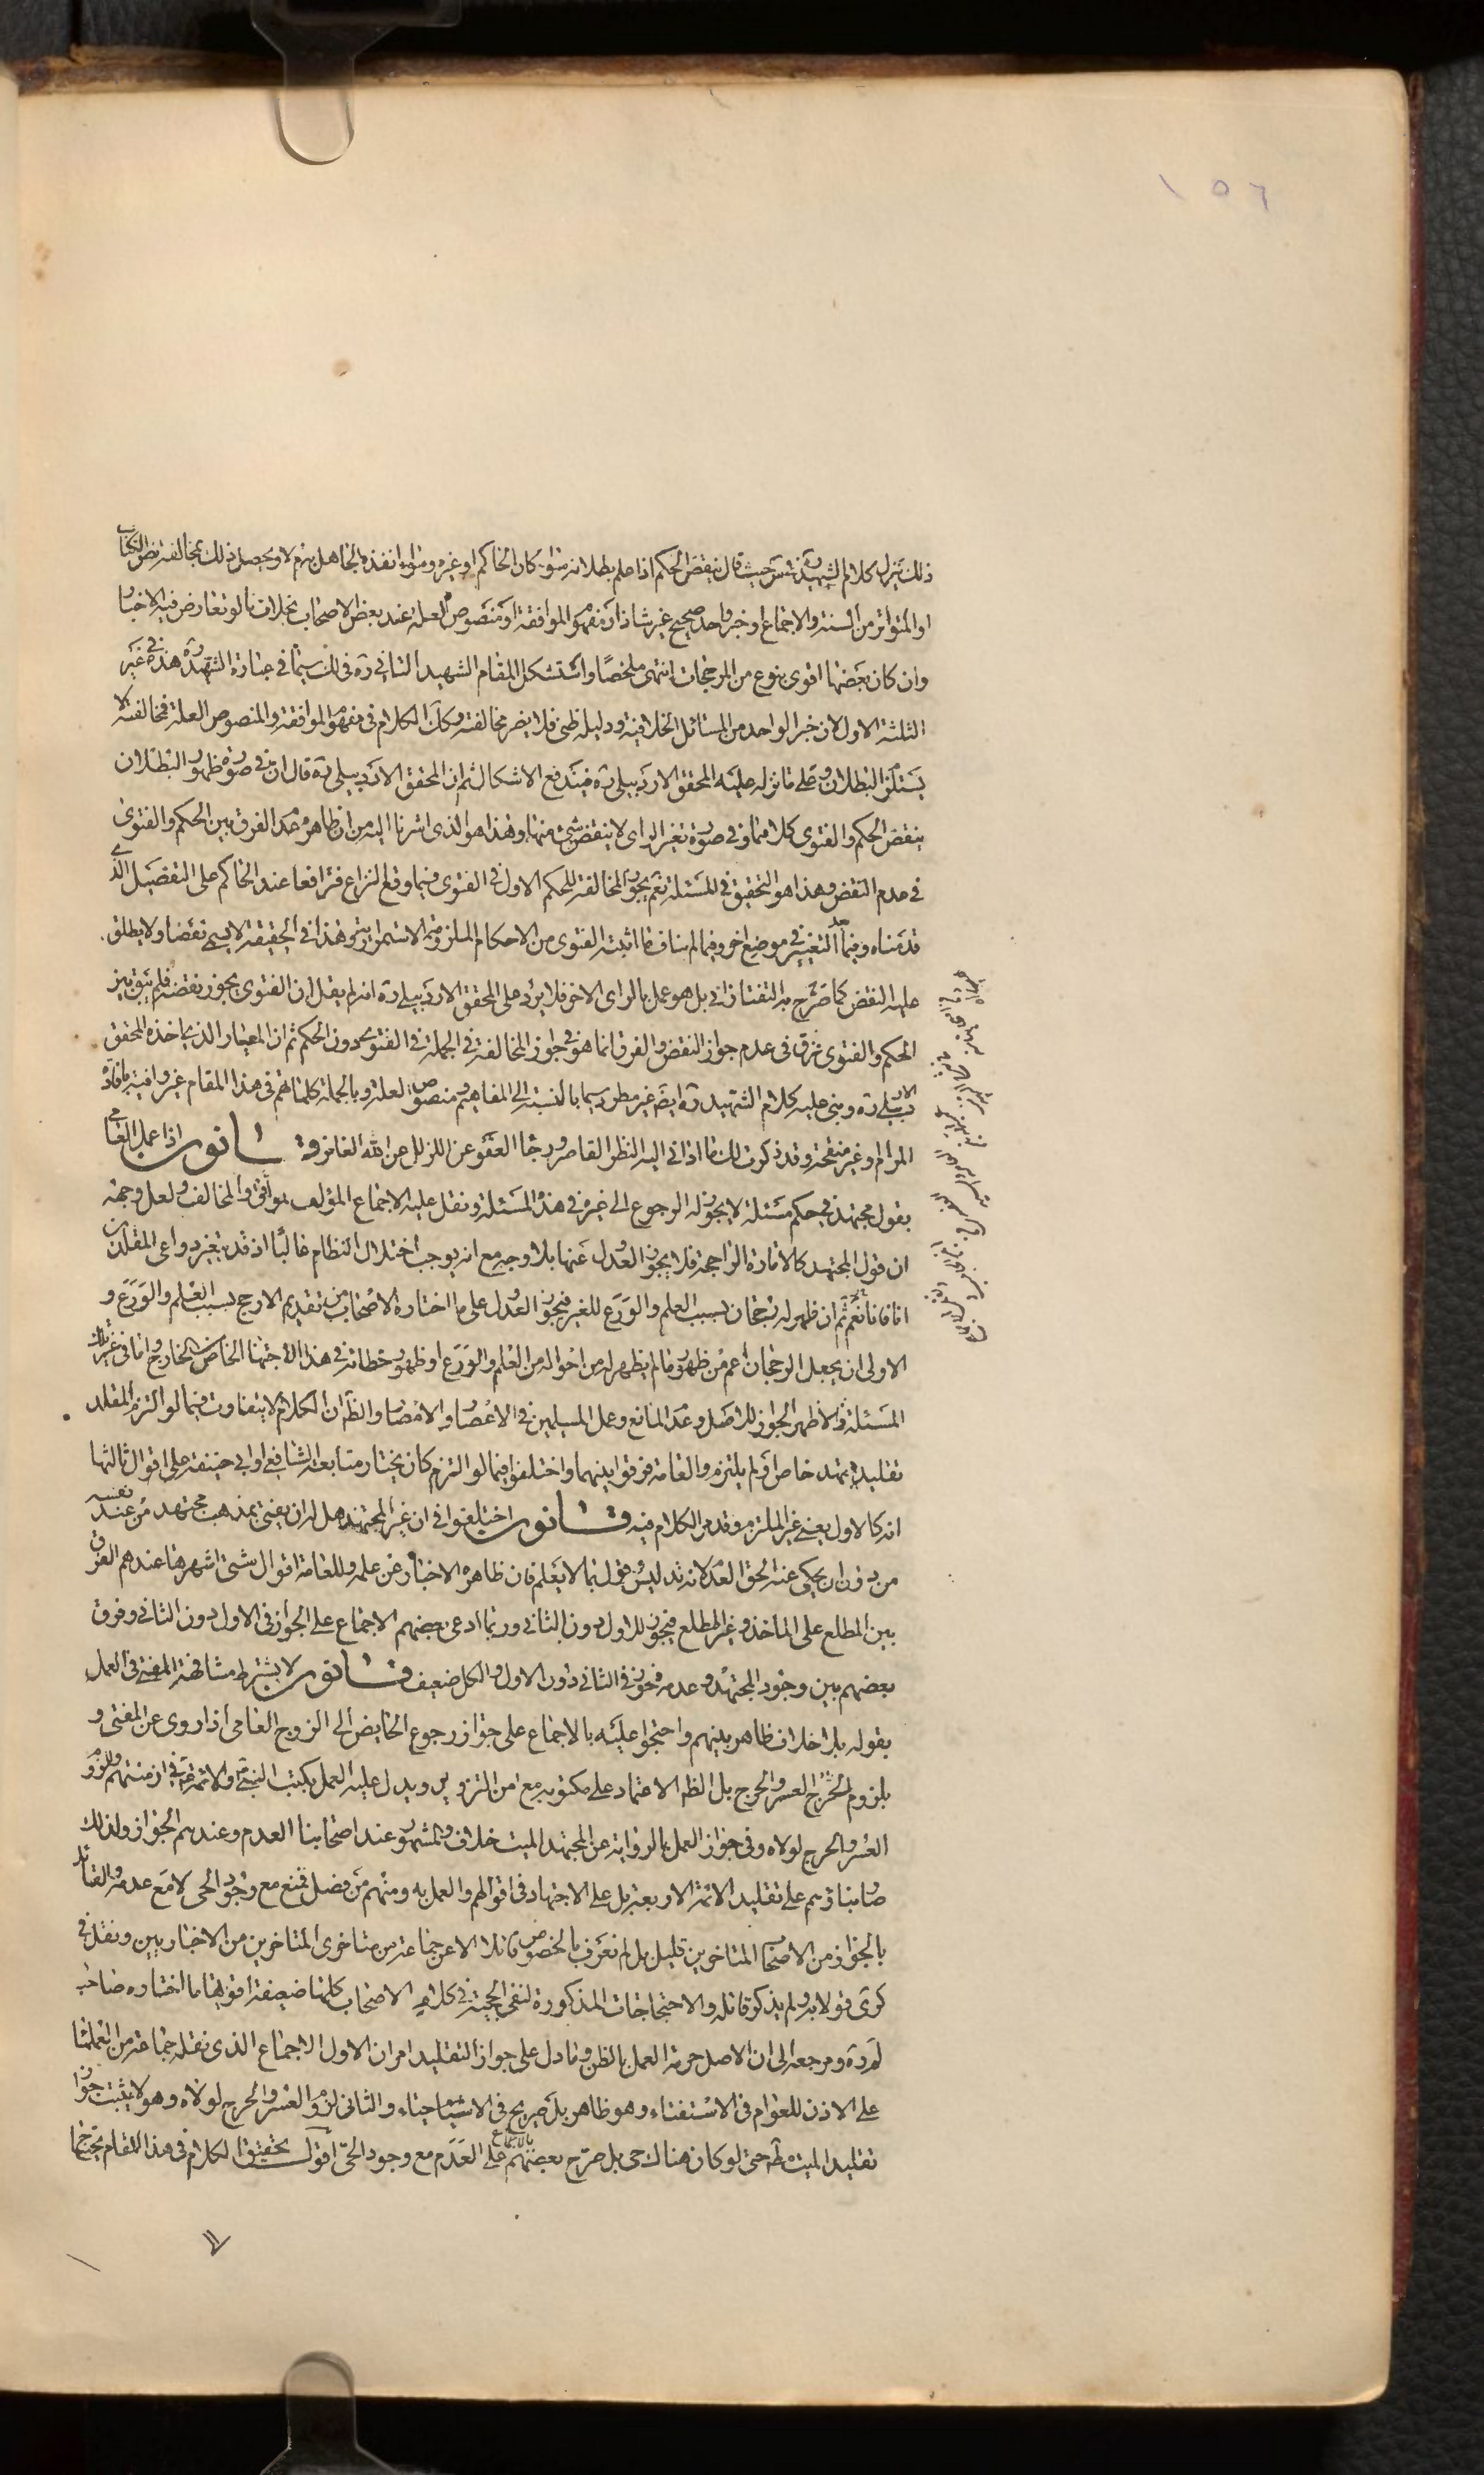 ١٥٦
ذلك ينزل كلام الشهيد ره في س حيث قال ينقض الحكم اذا علم بطلانه سواء كان الحاكم او غيره وسواء انفذه الجاهل به ام لا ويحصل ذلك بمخالفة نص الكتاب
او المتواتر من السنة والاجماع او خبر واحد صحيح غير شاذ او مفهوم الموافقة او منصوص العلة عند بعض الاصحاب بخلاف ما لو تعارض فيه الاخبار
وان كان بعضها اقوى بنوع من المرجحات انتهى ملخصا واستشكل المقام الشهيد الثاني ره في لك سيما في عبارة الشهيد ره هذه في غير
الثلثة الاول لان خبر الواحد من المسائل الخلافية ودليله ظني فلا يضر مخالفته وكذا الكلام في مفهوم الموافقة والمنصوص العلة فمخالفته لا
يستلزم البطلان وعلى ما نزله عليه المحقق الاردبيلي ره فيندفع الاشكال ثم ان المحقق الاردبيلي ره قال ان في صورة ظهور البطلان
ينقض الحكم والفتوى كلاهما وفي صورة تغير الراي لا ينقض شئ منهما وهذا هو الذي اشرنا اليه من ان ظاهره عدم الفرق بين الحكم والفتوى
في عدم النقض وهذا هو التحقيق في المسئلة نعم يجوز المخالفة للحكم الاول في الفتوى فيما وقع النزاع فترافعا عند الحاكم على التفصيل الذي
قدمناه وفيما التغيير في موضع اخر وفيما لم يناف ما اثبته الفتوى من الاحكام الملزومة الاستمرارية وهذا في الحقيقة لا يسمى نقضا ولا يطلق
عليه النقض كما صرح به التفتازاني بل هو عمل بالراى الاخر فلا يرد على المحقق الاردبيلي ره انه لم يقل ان الفتوى يجوز نقضه فلم يبق بين
الحكم والفتوى فرق في عدم جواز النقض والفرق انما هو في جواز المخالفة في الجملة في الفتوى دون الحكم ثم ان المعيار الذي ياخذه المحقق
الاردبيلي ره وبنى عليه كلام الشهيد ره ايضا غير مطرد سيما بالنسبة الى المفاهيم ومنصوص العلة وبالجملة كلماتهم في هذا المقام غير وافية بافادة
المرام وغير منقحة وقد ذكرت لك ما ادانى اليه النظر القاصر ورجائي العفو عن الزلل من الله الغافر قانون اذا عمل العامي
بقول مجتهد في حكم مسئلة لا يجوز له الرجوع الى غيره في هذه المسئلة ونقل عليه الاجماع المؤلف الموافق والمخالف ولعل وجهه
ان قول المجتهد كالامارة الراجحة فلا يجوز العدول عنها بلا وجه مع انه يوجب اختلال النظام غالبا اذ قد يتغير دواعى المقلدين
انا فانا نعم ان ظهر له رجحان بسبب العلم والورع للغير فيجوز العدول على ما اختاره الاصحاب من تقديم الارجح بسبب العلم والورع و
الاولى ان يجعل الرجحان اعم من ظهور ما لم يظهر له من احواله من العلم والورع او ظهور خطائه في هذا الاجتهاد الخاص بالخارج واما في غير تلك
المسئلة فالاظهر الجواز للاصل وعدم المانع وعمل المسلمين في الاعصار والامصار والظاهر ان الكلام لا يتفاوت فيما لو التزم المقلد
تقليد مجتهد خاص او لم يلتزم والعامة فرقوا بينهما واختلفوا فيما لو التزم كان يختار متابعة الشافعي او ابي حنيفة على اقوال ثالثها
انه كالاول يعني غير الملتزم وقد مر الكلام فيه قانون اختلفوا في ان غير المجتهد هل له ان يفتى بمذهب مجتهد من عند نفسه
من دون ان يحكى عنه الحق العدم لانه تدليس وقول بما لا يعلم فان ظاهره الاخبار عن علمه وللعامة اقوال شتى اشهرها عندهم الفرق
بين المطلع على الماخذ وغير المطلع فيجوز للاول دون الثاني وربما ادعى بعضهم الاجماع على الجواز في الاول دون الثاني وفرق
بعضهم بين وجود المجتهد وعدمه فجوز في الثاني دون الاول والكل ضعيف قانون لا يشترط مشافهة المفتي في العمل
بقوله بلا خلاف ظاهر بينهم واحتجوا عليه بالاجماع على جواز رجوع الحايض الى الزوج العامي اذا روى عن المفتى و
بلزوم العسر والحرج بل الظاهر الاعتماد على مكتوبه مع امن التزوير ويدل عليه العمل بكتب النبي ص والائمة ع في ازمنتهم ولزوم
العسر والحرج لولاه وفي جواز العمل بالرواية عن المجتهد الميت خلاف والمشهور عند اصحابنا العدم وعندهم الجواز ولذلك
صار بناؤهم على تقليد الائمة الاربعة بل على الاجتهاد في اقوالهم والعمل به ومنهم من فصل فمنع مع وجود الحى لا مع عدمه والقائل
بالجواز من الاصحاب المتاخرين قليل بل لم نعرف بالخصوص قائلا الا عن جماعة من متاخرى المتاخرين من الاخباريين ونقل في
كرى قولا به ولم يذكر قائله والاحتجاجات المذكورة لنفي الحجية في كلام الاصحاب كلها ضعيفة اقويها ما اختاره صاحب
لم ره ومرجعه الى ان الاصل حرمة العمل بالظن وما دل على جواز التقليد امران الاول الاجماع الذى نقله جماعة من العلماء
على الاذن للعوام في الاستفتاء وهو ظاهر بل صريح في الاستفتاء عن الاحياء والثاني لزوم العسر والحرج لولاه وهو لا يثبت جواز
تقليد الميت حتى لو كان هناك حى بل صرح بعضهم بالاجماع على العدم مع وجود الحى اقول تحقيق الكلام في هذا المقام يحتاج